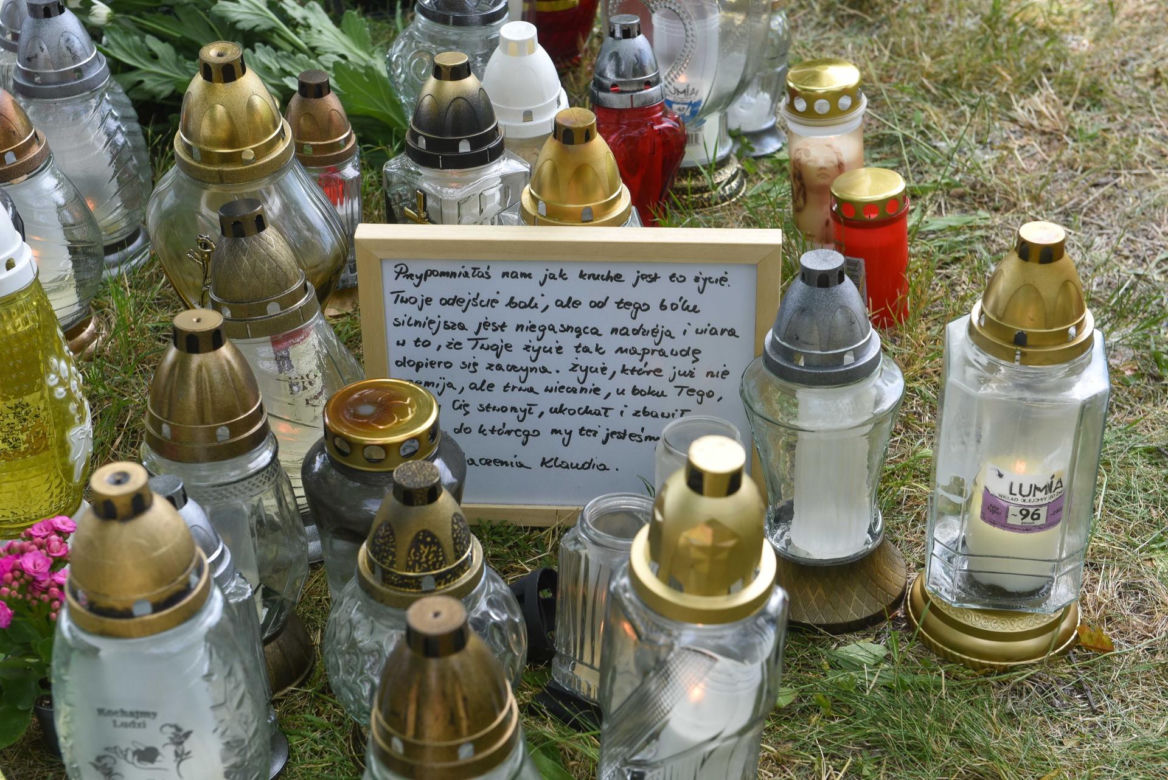 LUMIA
Przypomniałaś nam jak kruche jest to życie.
Twoje odejście boli, ale od tego bólu
silniejsza jest niegasnąca nadzieja i wiara
w to, że Twoje życie tak naprawdę
dopiero się zaczyna. Życie, które już nie
mija, ale trwa wiecznie, u boku Tego,
Cię stworzył, ukochał i zbawił
do którego my też jesteśm
aczenia Klaudia.
LUMIA
-96
Kochajmy
Ludzi